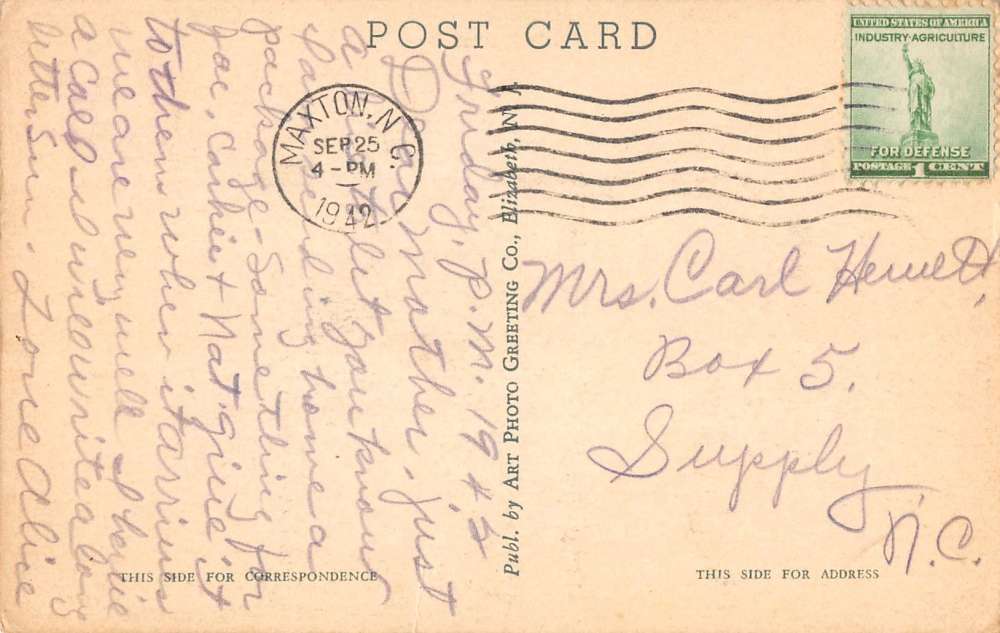 POST CARD
UNITED STATES OF AMERICA
INDUSTRY·AGRICULTURE
FOR DEFENSE
POSTAGE 1 CENT
MAXTON, N.C.
SEP 25
4 - PM
1942
Friday, P.M. 1942
Dear Mother, just
a to let you know
I am sending home a
package - Something for
Joe, Carlie + Nat give it
to them when it arrives
we are very well I have
a cold will write a long
letter Sun. Love Alice
Publ. by ART PHOTO GREETING CO., Elizabeth, N. J.
Mrs. Carl Hewett,
Box 5.
Supply
N.C.
THIS SIDE FOR CORRESPONDENCE
THIS SIDE FOR ADDRESS